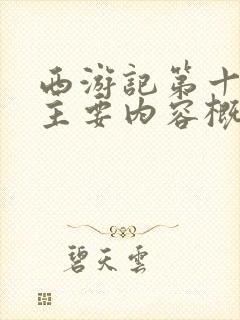 西游記第十
主要內容概
碧天雲